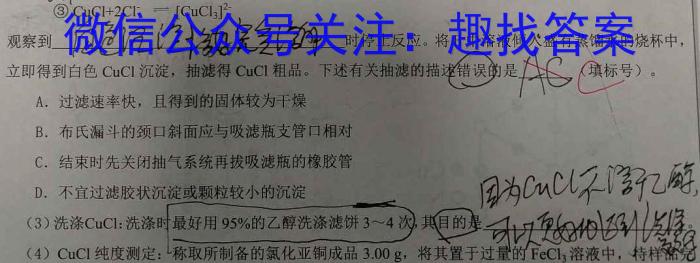 ③CuCl+2Cl⁻ ═ [CuCl₃]²⁻
微信公众号关注：趣找答案
观察到 时停止反应。将 的烧杯中，
立即得到白色 CuCl 沉淀，抽滤得 CuCl 粗品。下述有关抽滤的描述错误的是 AC（填标号）。
A．过滤速率快，且得到的固体较为干燥
B．布氏漏斗的颈口斜面应与吸滤瓶支管口相对
C．结束时先关闭抽气系统再拔吸滤瓶的橡胶管
D．不宜过滤胶状沉淀或颗粒较小的沉淀
因为CuCl不溶于乙醇
(3) 洗涤CuCl：洗涤时最好用 95%的乙醇洗涤滤饼 3～4 次，其目的是
可以更好地
(4) CuCl 纯度测定：称取所制备的氯化亚铜成品 3.00 g，将其置于过量的 FeCl₃ 溶液中，待样品